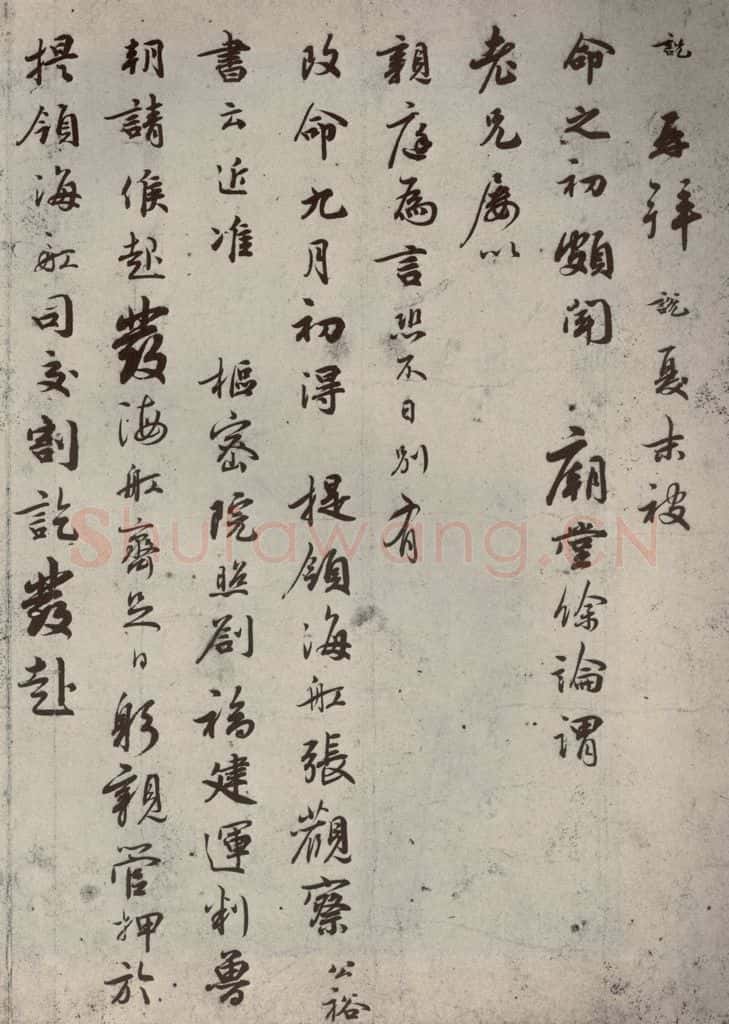 說 再拜 說夏末被
命之初頗聞 廟堂餘論謂
老兄屢以
親庭為言恐不日別有
改命九月初得 提領海舡張觀察公裕
書云近准 樞密院照劄福建運判曾
朝請候起發海舡齊足日躬親管押於
提領海舡司交割訖發赴
Shufawang.CN